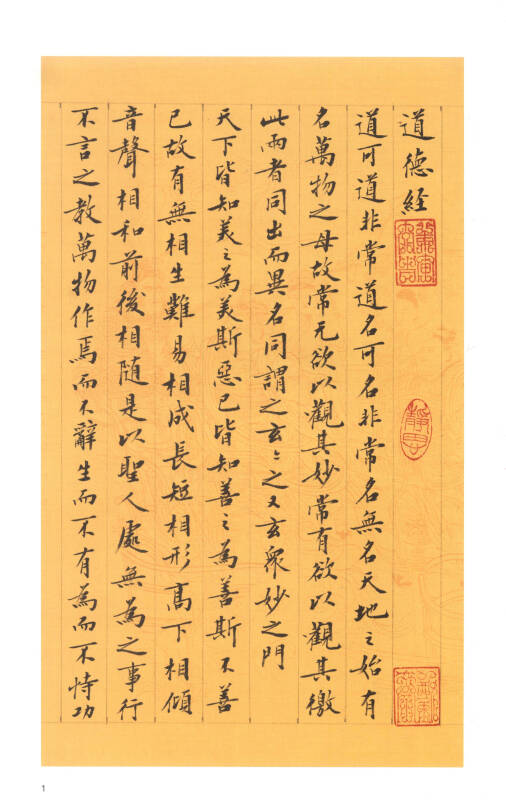 道德經
道可道非常道名可名非常名無名天地之始有
名萬物之母故常无欲以觀其妙常有欲以觀其徼
此兩者同出而異名同謂之玄〻之又玄眾妙之門
天下皆知美之為美斯惡已皆知善之為善斯不善
已故有無相生難易相成長短相形高下相傾
音聲相和前後相隨是以聖人處無為之事行
不言之教萬物作焉而不辭生而不有為而不恃功
靜思
1